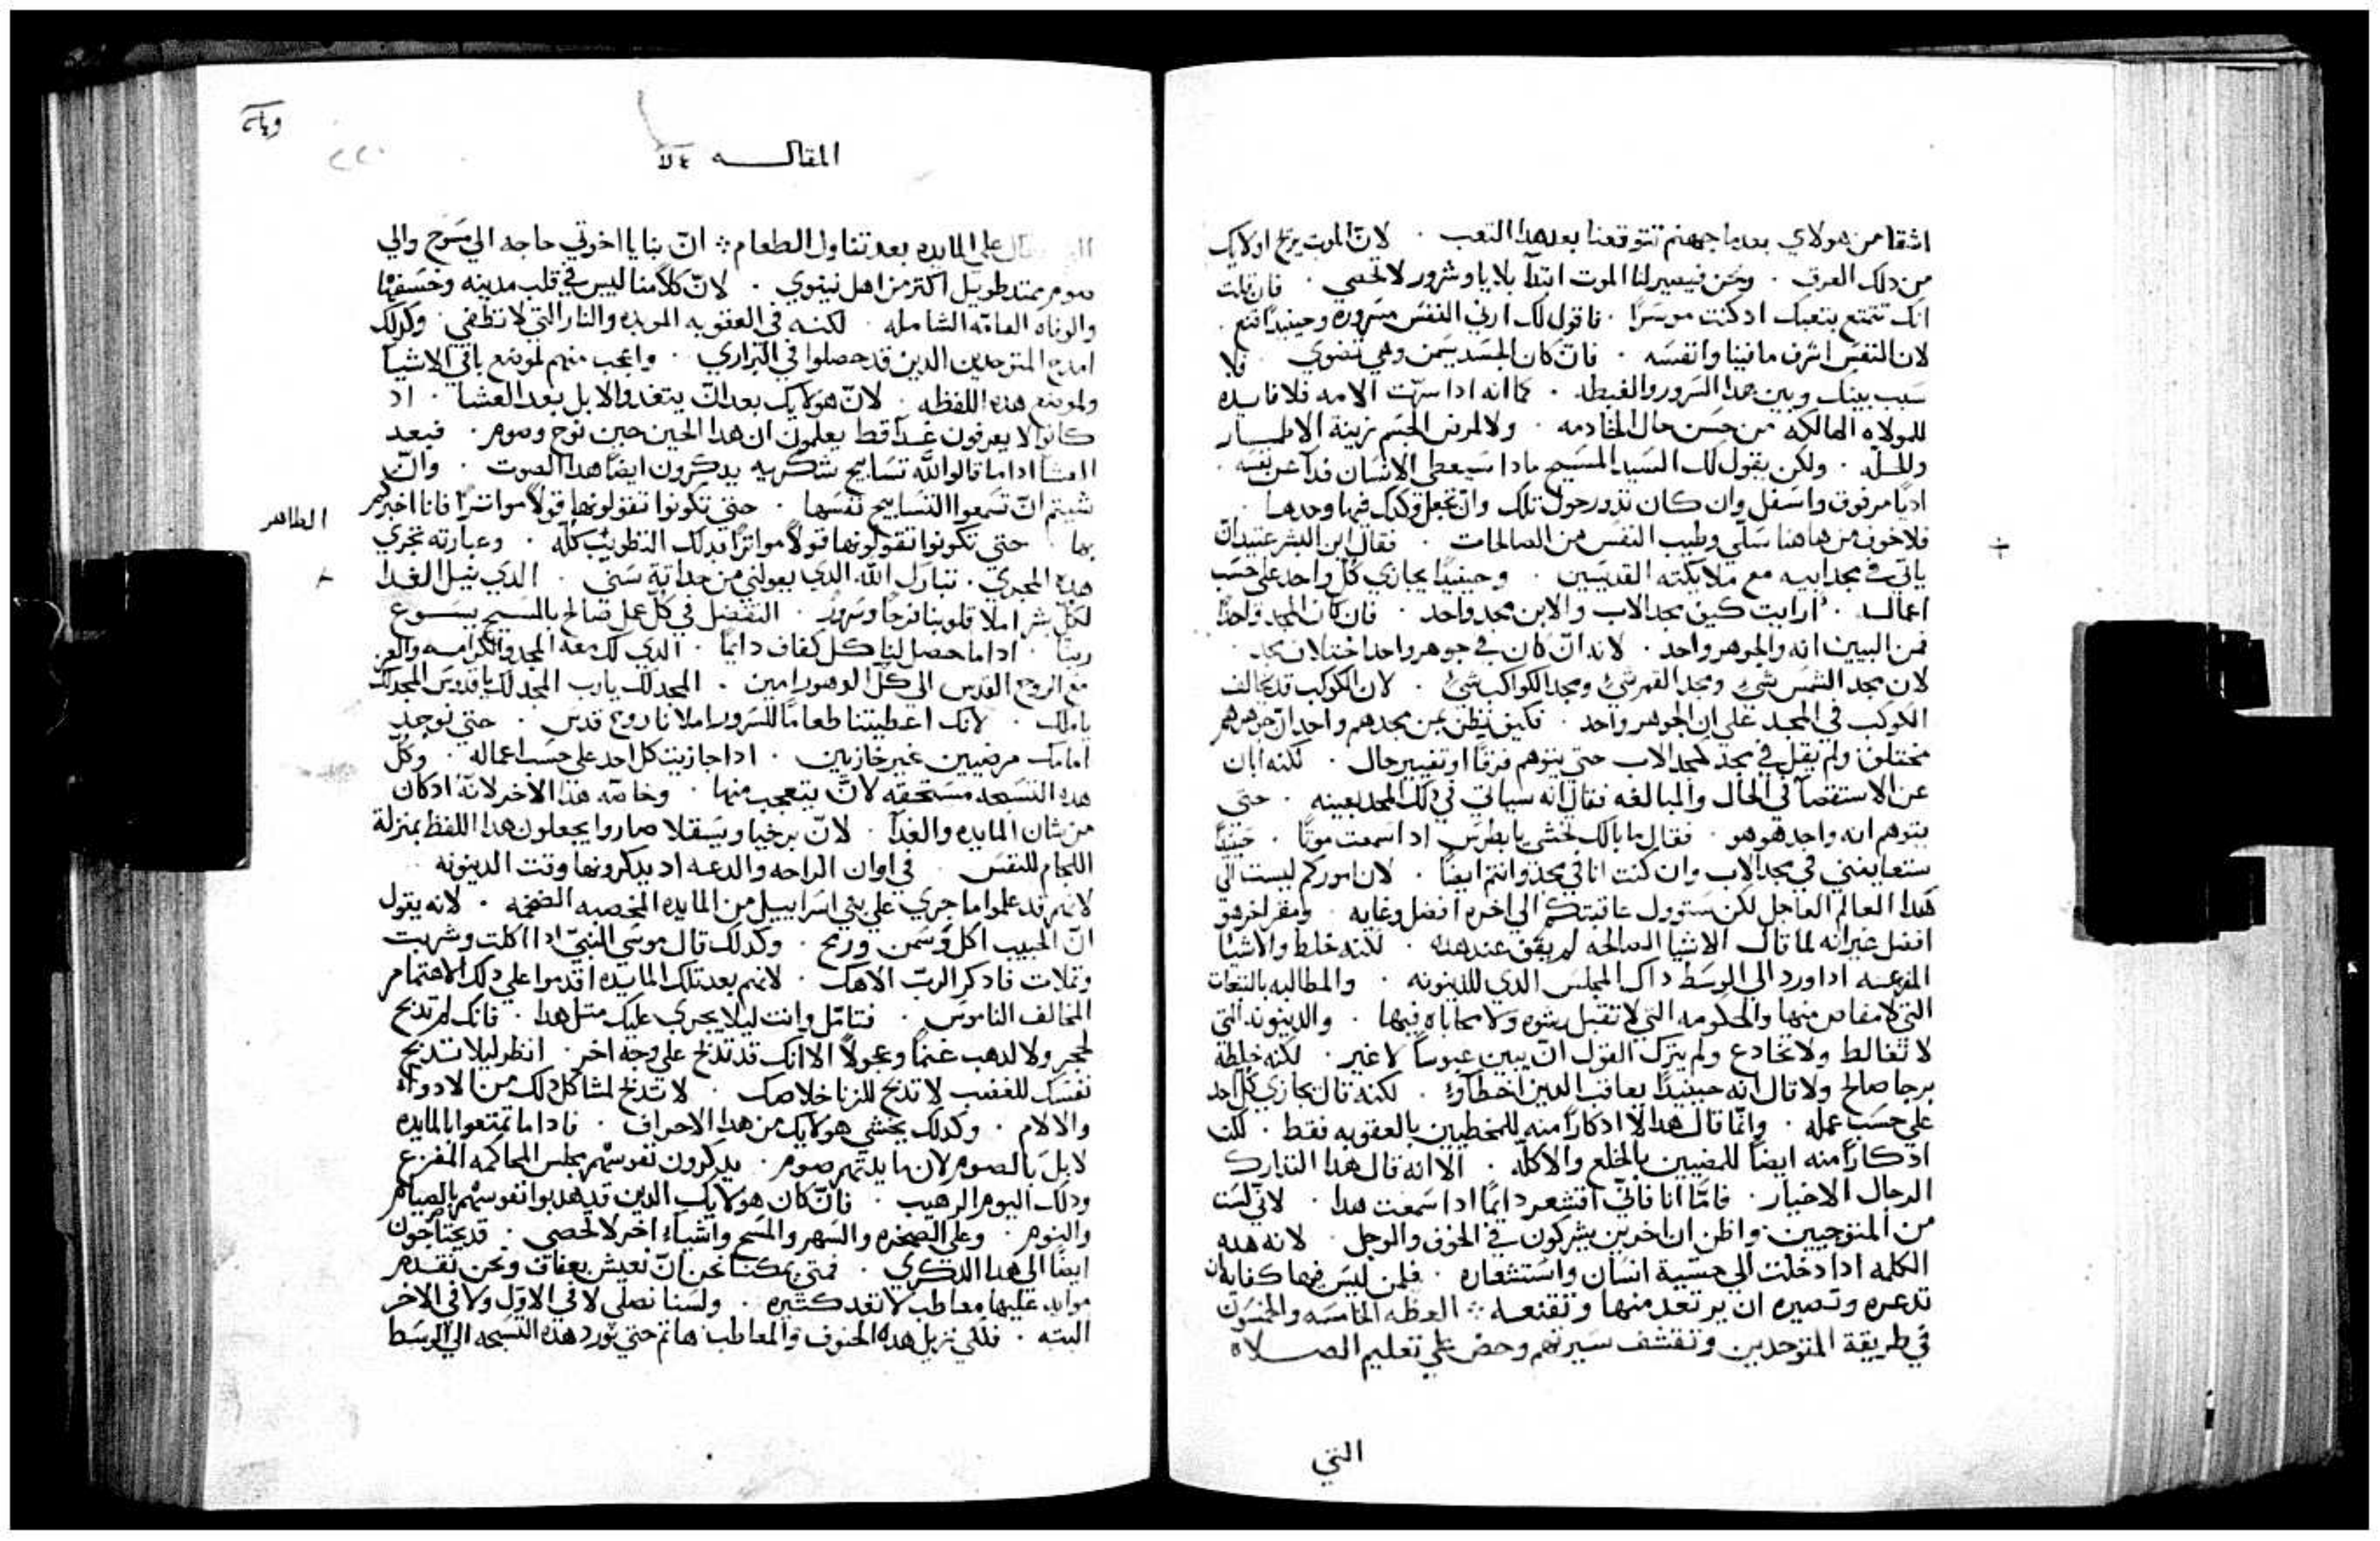 اشقا من هولاي بعدما جهنم تتوقعنا بعد هدا التعب . لان الموت يريح اولايك
من دلك العرق . ونحن فيصير لنا الموت ابتدآ بلايا وشرور لا تحصي . فان قلت
انك تتمتع بتعبك اد كنت موسرًا . فاقول لك ارني النفس مسروره وحينيدٍ اقنع .
لان النفس اشرف ما فينا وانفسه . فان كان الجسد يسمن وهي تضوي . فلا
سبب بينك وبين هدا السرور والغبطه . كما انه ادا سرّت الامه فلا فايده
للمولاه الهالكه من حسن حال الخادمه . ولا لمرض الجسم بزينة الاطمار
وللحلّه . ولكن يقول لك السيد المسيح مادا سيعطي الانسان فدآ عن نفسه .
وان كان تدور حول تلك وان تجعل وكدك فيها وحدها
فلا خوف من هاهنا سلّي وطيب النفس من الصالحات . فقال ابن البشر عتيد ان
ياتي في مجد ابيه مع ملايكته القديسين . وحينيدٍ يجازي كل واحد علي حسب
اعماله . ارايت كيف مجد الاب والابن مجد واحد . فان كان المجد واحدًا
فمن البيين انه والجوهر واحد . لانه ان كان في جوهر واحد اختلاف مجد .
لان مجد الشمس شي ومجد القمر شي ومجد الكواكب شي . لان الكوكب قد يخالف
الكوكب في المجد علي ان الجوهر واحد . فكيف يظن بمن مجدهم واحد ان جوهرهم
مختلف ولم يقل في مجد كمجد الاب حتي يتوهم فرقًا او تغيير حال . لكنه ابان
عن الاستقصآ في الحال والمبالغه فقال انه سياتي في دلك المجد بعينه . حتي
يتوهم انه واحد هو هو . فقال ما بالك تخشي يا بطرس اد اسمعت موتًا . حينيدٍ
ستعاينني في مجد الاب وان كنت انا في مجد وانتم ايضًا . لان اموركم ليست الي
هدا العالم العاجل لكن ستوول عاقبتكم الي اخره افضل وغايه
افضل غير انه لما قال الاشيا الصالحه لم يقف عند هده . لكنه خلط والاشيا
المفزعه ادا ورد الي الوسط داك المجلس الدي للدينونه . والمطالبه بالتبعات
التي لا مناص منها والحكومه التي لا تقبل رشوه ولا محاباه فيها . والدينونه التي
لا تغالط ولا تخادع ولم يترك القول ان يبين عبوسًا لا غير . لكنه خلطه
برجا صالح ولا قال انه حينيدٍ يعاقب الدين اخطآوا . لكنه قال يجازي كل احد
علي حسب عمله . وانما قال هدا لا ادكارًا منه للمخطيين بالعقوبه فقط . لكن
ادكارًا منه ايضًا للمصيبين بالخلع والاكلّه . الا انه قال هدا التدارك
الرجال الاخيار . فامّا انا فاني اقشعر دايمًا ادا سمعت هدا . لاني لست
من المتوجيين . واظن ان اخرين يشركون في الخوف والوجل . لانه هده
الكلمه ادا دخلت الي حسّية انسان واستشعاره . فلمن ليس فيها كفايه ان
تدعره وتصيره ان يرتعد منها وتقنعه ∴ العظه الخامسه والخمسون
في طريقة المتوحدين وتقشف سيرتهم وحض علي تعليم الصلاه
التي
المقاله
٢٢٠
علي المايده بعد تناول الطعام ∴ ان بنا يا اخوتي حاجه الي مسوح والي
صوم ممتد طويل اكتر من اهل نينوي . لان كلامنا ليس في قلب مدينه وخسفها
والوباه العامّه الشامله . لكنه في العقوبه الموبده والنار التي لا تطفي . وكدلك
امدح المتوحدين الدين قد حصلوا في البراري . واعجب منهم لموضع باقي الاشيا
ولموضع هده اللفظه . لان هولايك بعد ان يتغدوا لا بل بعد العشا . اد
كانوا لا يعرفون غدآ قط يعلمون ان هدا الحين حين نوح وصوم . فبعد
العشآ ادا ما قالوا لله تسابيح شكريه يدكرون ايضًا هدا الصوت . وان
شيتم ان تسمعوا التسابيح نفسها . حتي تكونوا تقولونها قولاً مواترًا فانا اخبركم
بها . حتي تكونوا تقولونها قولاً مواترًا دلك التطويب كلّه . وعبارته تجري
الطاهر
هده المجري . تبارك الله الدي يعولني من حداتة سني . الدي ينيل الغدا
لكل بشر املا قلوبنا فرحًا وسرورًا . التفضل في كل عمل صالح بالمسيح يسوع
ربنا . ادا ما حصل لنا كل كفاف دايمًا . الدي لك معه المجد والكرامه والعز
مع الروح القدس الي كل الدهور امين . المجد لك يا رب المجد لك يا قدوس المجد لك
يا ملك . لانك اعطيتنا طعامًا للسرور املانا روح قدس . حتي نوجد
امامك مرضيين غير خازيين . ادا جازيت كل احد علي حسب اعماله . وكل
هده التسبحه مستحقه لان يتعجب منها . وخاصّه هدا الاخر لانه اد كان
من شان المايده والغدآ . لان يرخيا ويتقلا صاروا يجعلون هدا اللفظ بمنزلة
اللجام للنفس . في اوان الراحه والدعه اد يدكرونها وقت الدينونه
لانهم قد علموا ما جري علي بني اسراييل من المايده المخصبه الضخمه . لانه يقول
ان الحبيب اكل وسمن ورمح . وكدلك قال موسي النبي ادا اكلت وشربت
وتملات فادكر الرب الاهك . لانهم بعد تلك المايده اقدموا علي دلك الاهتمام
المخالف الناموس . فتامّل وانت ليلا يجري عليك متل هدا . فانك لم تدبح
لحجر ولا لدهب غنمًا وعجولاً الا انك قد تدبح علي وجه اخر . انظر ليلا تدبح
نفسك للغضب لا تدبح للزنا خلاصك . لا تدبح لمشاكل دلك من الادوآ
والالام . وكدلك يخشي هولايك من هدا الاحراف . فادا ما تمتعوا بالمايده
لا بل بالصوم لان مايدتهم صوم . يدكرون نفوسهم بمجلس المحاكمه المفزع
ودلك اليوم الرهيب . فان كان هولايك الدين قد هدبوا نفوسهم بالصيام
والنوم . وعلي الصخره والسهر والمسح واشيآء اخر لا تحصي . قد يحتاجون
ايضًا الي هدا الدكري . فمتي يمكننا نحن ان نعيش بعفاف ونحن نقدم
موايد عليها معاطب لا تعد كتيره . ولسنا نصلي لا في الاوّل ولا في الاخر
البته . فلكي نزيل هده الحتوف والمعاطب هاتم حتي نورد هده التسبحه الي الوسط